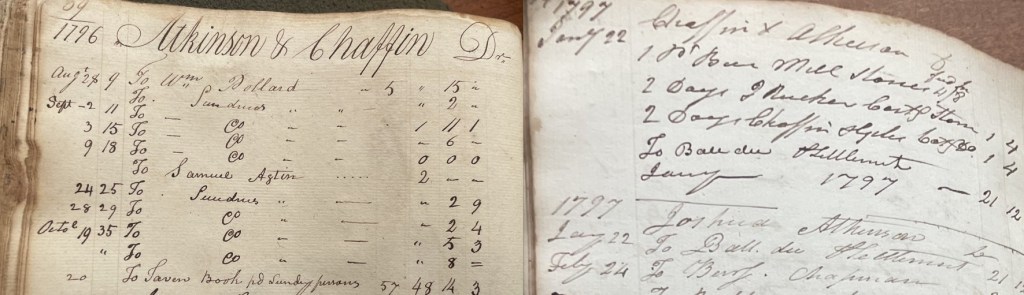 69
1796 Atkinson & Chaffin Drs
Augt 28 9 To Wm Pollard - 5 " 15 =
Sept -2 11 To Sundries " " - " 2 -
3 15 To — Co - — 1 11 1
9 18 To — Co - — - 6 -
To — Co - — 0 0 0
To Samuel Aptin ..... 2 — -
24 25 To Sundries " — " 2 9
28 29 To Co " — " 2 4
Octo 19 35 To Co - — " 5 3
" To Co - — " 8 =
20 To Tavern Book pd Sundry persons 57 48 14 3
1797
Jany 22 Chaffin & Atkinson
1 Pr Burr Mill Stones
2 Days J Rucker 1 4
2 Days Chaffin 1 4
To Ball due Settlement
Jany 1797 — 21 12
1797 Joshua Atkinson
Jany 22 To Ball. due Settlement 21 12
Feby 24 To Benj. Chapman